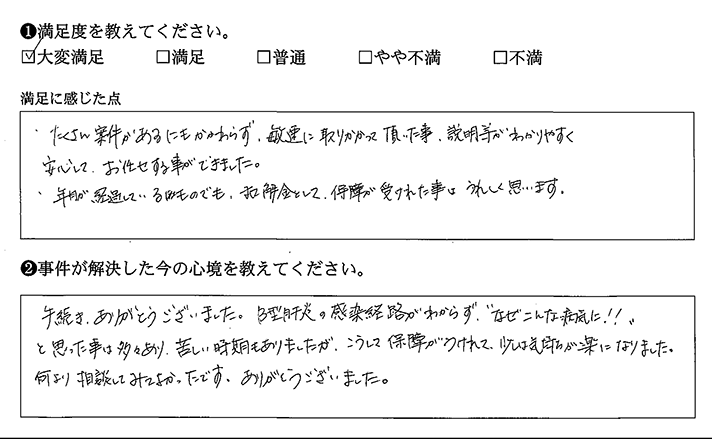 ❶満足度を教えてください。
☑大変満足 □満足 □普通 □やや不満 □不満
満足に感じた点
・たくさん案件があるにもかかわらず、敏速に取りかかって頂いた事、説明等がわかりやすく
安心して、お任せする事ができました。
・年月が経過しているものでも、和解金として、保障が受けれた事は うれしく思います。
❷事件が解決した今の心境を教えてください。
手続き、ありがとうございました。B型肝炎の感染経路がわからず、"なぜこんな病気に!!"
と思った事は多々あり、苦しい時期もありましたが、こうして保障がうけれて、少しは気持ちが楽になりました。
何より相談してみてよかったです、ありがとうございました。